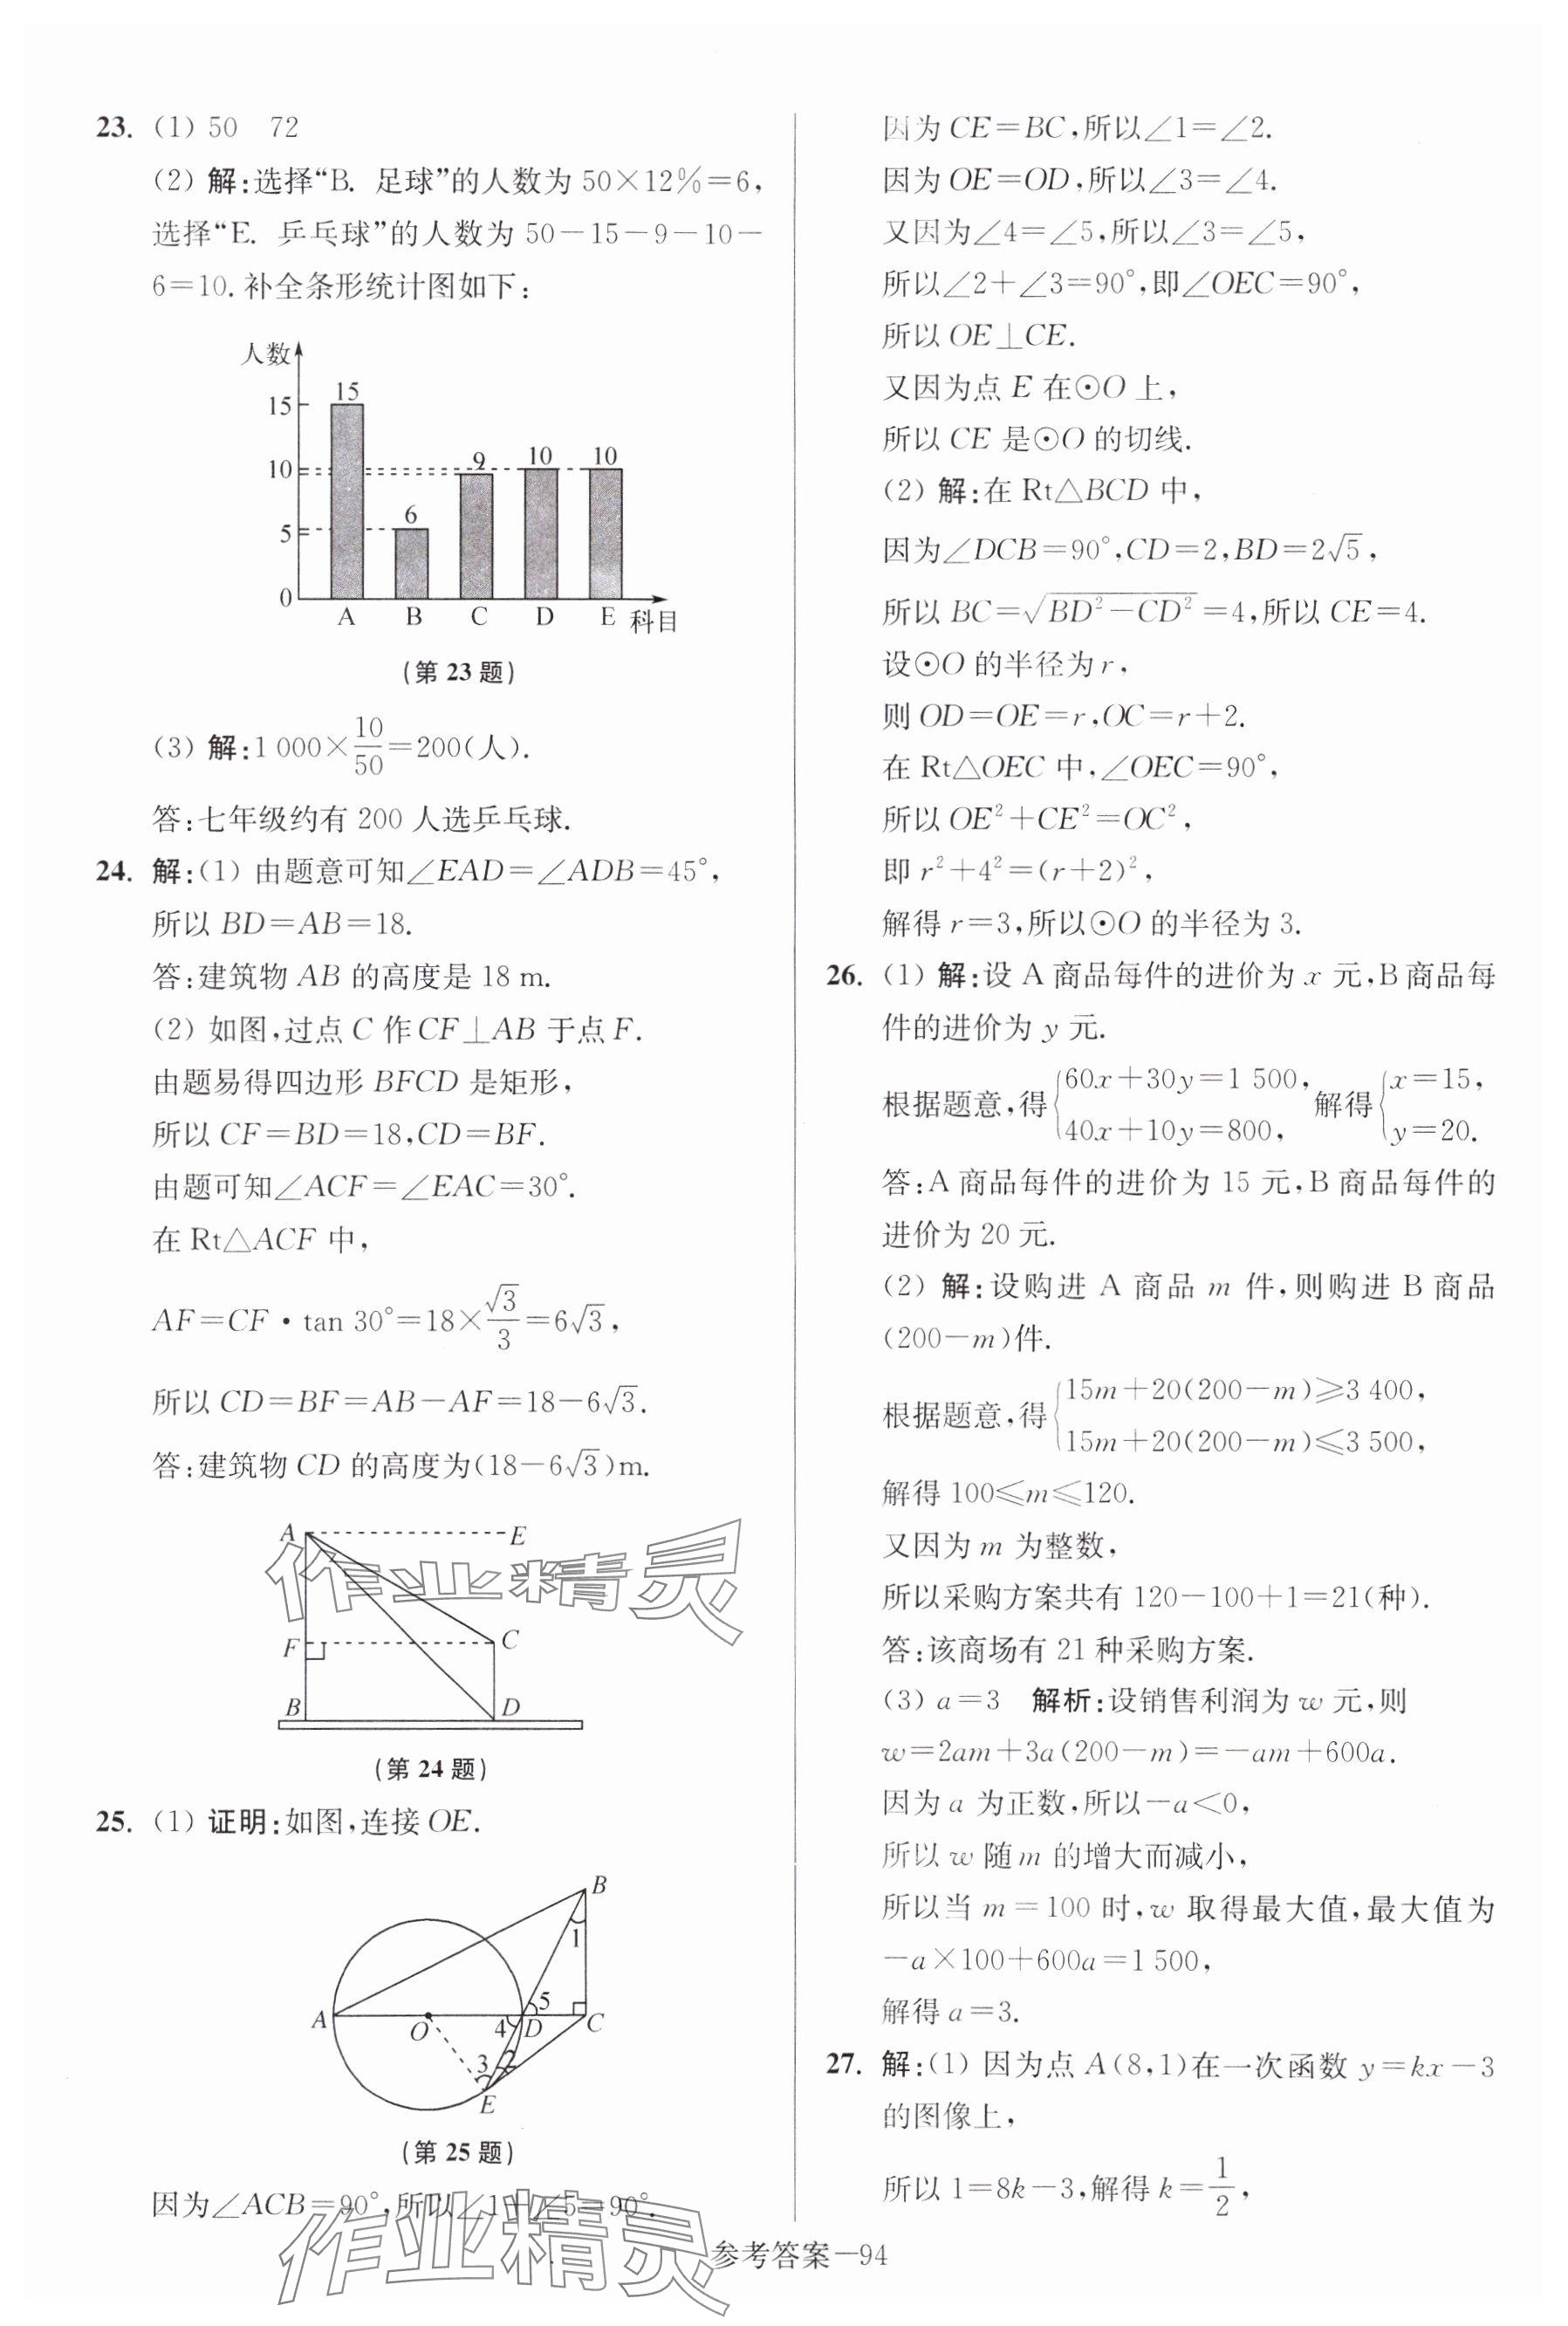 23. (1) 50　72
(2) 解:选择“B. 足球”的人数为 50×12%=6,
选择“E. 乒乓球”的人数为 50-15-9-10-
6=10. 补全条形统计图如下:
人数
15
15
10
9
10
10
6
5
0
A B C D E 科目
(第 23 题)
(3) 解:1 000×10/50=200(人).
答:七年级约有 200 人选乒乓球.
24. 解:(1) 由题意可知∠EAD=∠ADB=45°,
所以 BD=AB=18.
答:建筑物 AB 的高度是 18 m.
(2) 如图,过点 C 作 CF⊥AB 于点 F.
由题易得四边形 BFCD 是矩形,
所以 CF=BD=18,CD=BF.
由题可知∠ACF=∠EAC=30°.
在 Rt△ACF 中,
AF=CF·tan 30°=18×√3/3=6√3,
所以 CD=BF=AB-AF=18-6√3.
答:建筑物 CD 的高度为(18-6√3)m.
A E
作业精灵
F C
B D
(第 24 题)
25. (1) 证明:如图,连接 OE.
B
1
5
A O 4 D C
3 2
E
(第 25 题)
因为∠ACB=90°,所以∠1+∠5=90°.
作业精灵
因为 CE=BC,所以∠1=∠2.
因为 OE=OD,所以∠3=∠4.
又因为∠4=∠5,所以∠3=∠5,
所以∠2+∠3=90°,即∠OEC=90°,
所以 OE⊥CE.
又因为点 E 在⊙O 上,
所以 CE 是⊙O 的切线.
(2) 解:在 Rt△BCD 中,
因为∠DCB=90°,CD=2,BD=2√5,
所以 BC=√(BD²-CD²)=4,所以 CE=4.
设⊙O 的半径为 r,
则 OD=OE=r,OC=r+2.
在 Rt△OEC 中,∠OEC=90°,
所以 OE²+CE²=OC²,
即 r²+4²=(r+2)²,
解得 r=3,所以⊙O 的半径为 3.
26. (1) 解:设 A 商品每件的进价为 x 元,B 商品每
件的进价为 y 元.
根据题意,得{60x+30y=1 500, 40x+10y=800, 解得{x=15, y=20.
答:A 商品每件的进价为 15 元,B 商品每件的
进价为 20 元.
(2) 解:设购进 A 商品 m 件,则购进 B 商品
(200-m)件.
根据题意,得{15m+20(200-m)⩾3 400, 15m+20(200-m)⩽3 500,
解得 100⩽m⩽120.
又因为 m 为整数,
所以采购方案共有 120-100+1=21(种).
答:该商场有 21 种采购方案.
(3) a=3　解析:设销售利润为 w 元,则
w=2am+3a(200-m)=-am+600a.
因为 a 为正数,所以-a<0,
所以 w 随 m 的增大而减小,
所以当 m=100 时,w 取得最大值,最大值为
-a×100+600a=1 500,
解得 a=3.
27. 解:(1) 因为点 A(8,1)在一次函数 y=kx-3
的图像上,
所以 1=8k-3,解得 k=1/2,
参考答案—94